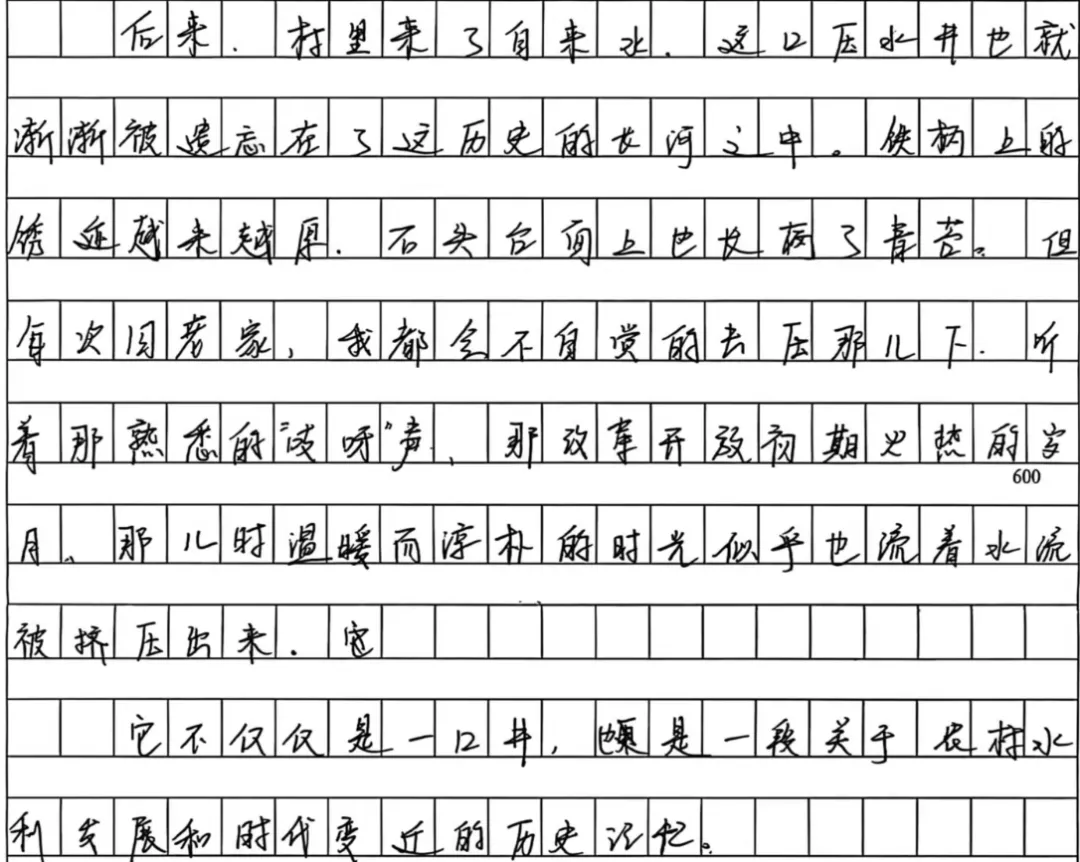 后来.村里来了自来水.这口压水井也就
渐渐被遗忘在了这历史的长河之中。铁柄上的
锈迹越来越厚.石头台间上也长满了青苔。但
每次回老家,我都会不自觉的去压那儿下.听
着那熟悉的"吱呀"声、那改革开放初期火热的岁
600
月、那儿时温暖而淳朴的时光似乎也流着水流
被挤压出来.它
它不仅仅是一口井,更是一段关于农村水
利发展和时代变迁的历史记忆。